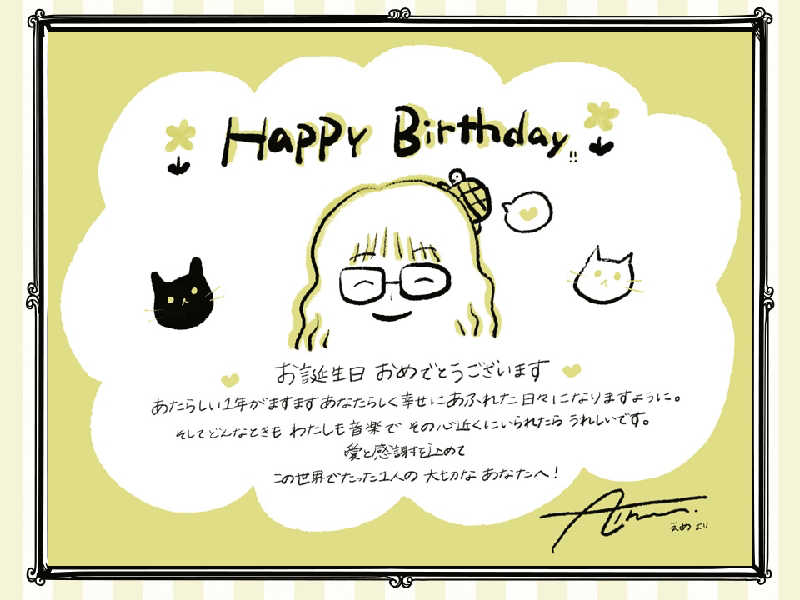 Happy Birthday!!
お誕生日 おめでとうございます
あたらしい1年がますます あなたらしく幸せにあふれた日々になりますように。
そしてどんなときも わたしも音楽で その心近くにいられたら うれしいです。
愛と感謝を込めて
この世界でたった1人の 大切な あなたへ!
Aimer.
えめより